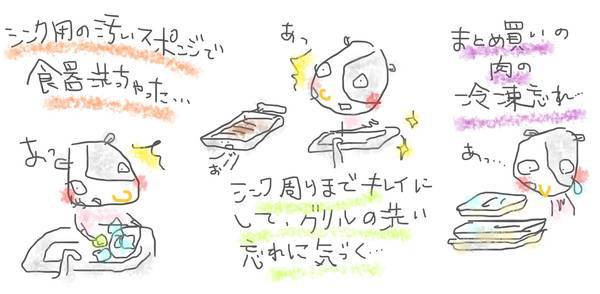 シンク用の汚いスポンジで
食器洗っちゃった…
あっ
あっ
シンク周りまでキレイに
して、グリルの洗い
忘れに気づく…
まとめ買いの
肉の
冷凍忘れ…
あっ…